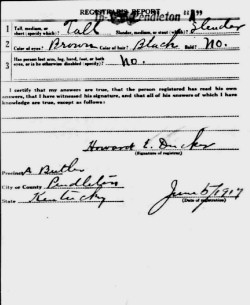 REGISTRAR'S REPORT
1 Tall, medium, or short (specify which)? Tall Slender, medium, or stout (which)? Slender
2 Color of eyes? Brown Color of hair? Black Bald? No.
3 Has person lost arm, leg, hand, foot, or both eyes, or is he otherwise disabled (specify)? No.
I certify that my answers are true, that the person registered has read his own
answers, that I have witnessed his signature, and that all of his answers of which I have
knowledge are true, except as follows:
Howard E.
(Signature of registrar)
Precinct Butler
City or County Pendleton
State Kentucky
June 5/1917
(Date of registration)